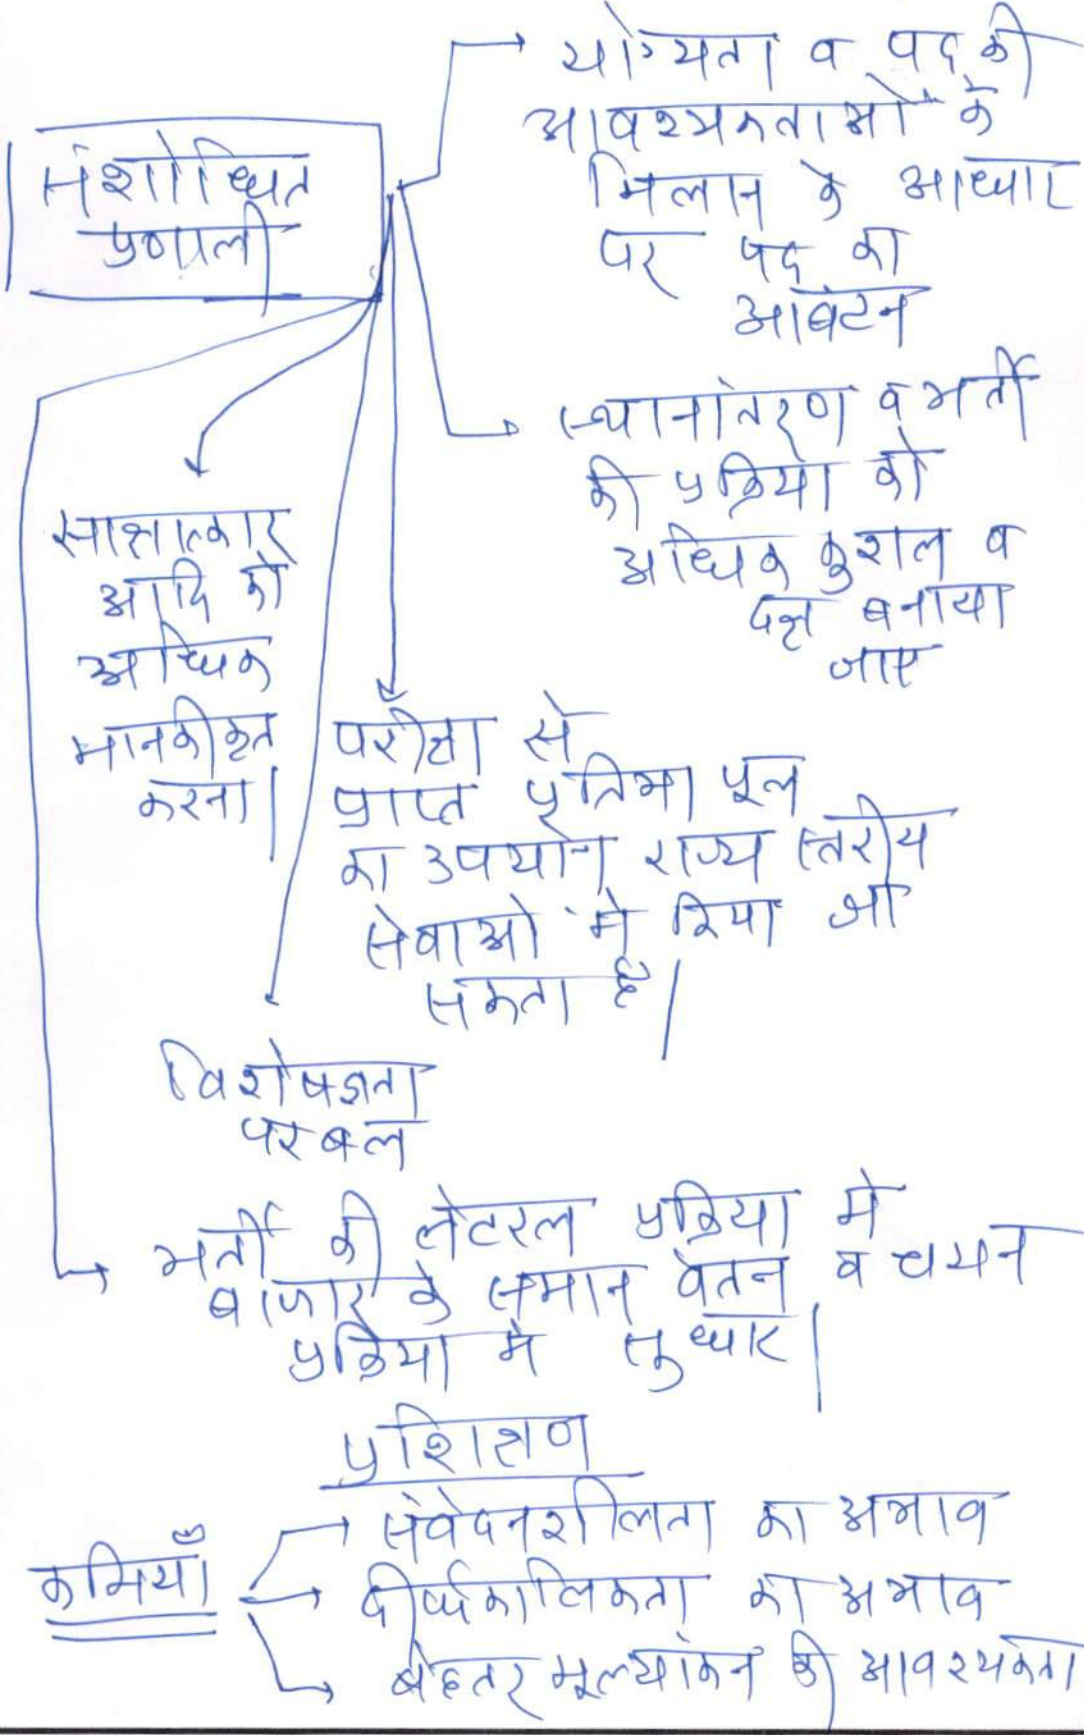 संशोधित
प्रणाली
योग्यता व पद की
आवश्यकताओं के
मिलान के आधार
पर पद का
आबंटन
स्थानांतरण व भर्ती
की प्रक्रिया को
अधिक कुशल व
दक्ष बनाया
जाए
साक्षात्कार
आदि को
अधिक
मानकीकृत
करना।
परीक्षा से
प्राप्त प्रतिभा पूल
का उपयोग राज्य स्तरीय
सेवाओं में किया जा
सकता है।
विशेषज्ञता
पर बल
भर्ती की लेटरल प्रक्रिया में
बाजार के समान वेतन व चयन
प्रक्रिया में सुधार।
प्रशिक्षण
कमियाँ
संवेदनशीलता का अभाव
दीर्घकालिकता का अभाव
बेहतर मूल्यांकन की आवश्यकता